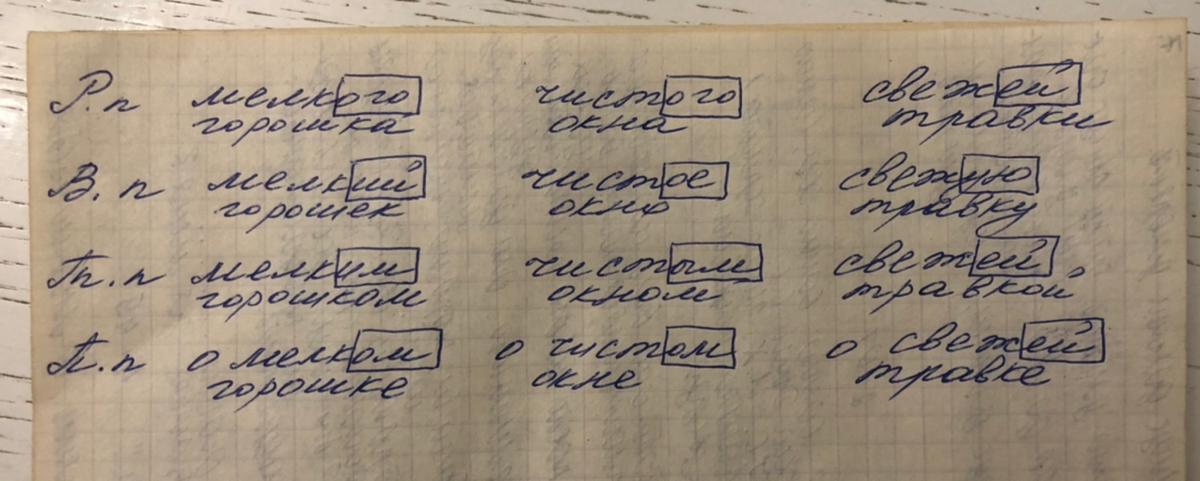 Р.п мелкого чистого свежей
горошка окна травки
В.п мелкий чистое свежую
горошек окно травку
Тп.п мелким чистым свежей
горошком окном травкой
П.п о мелком о чистом о свежей
горошке окне травке